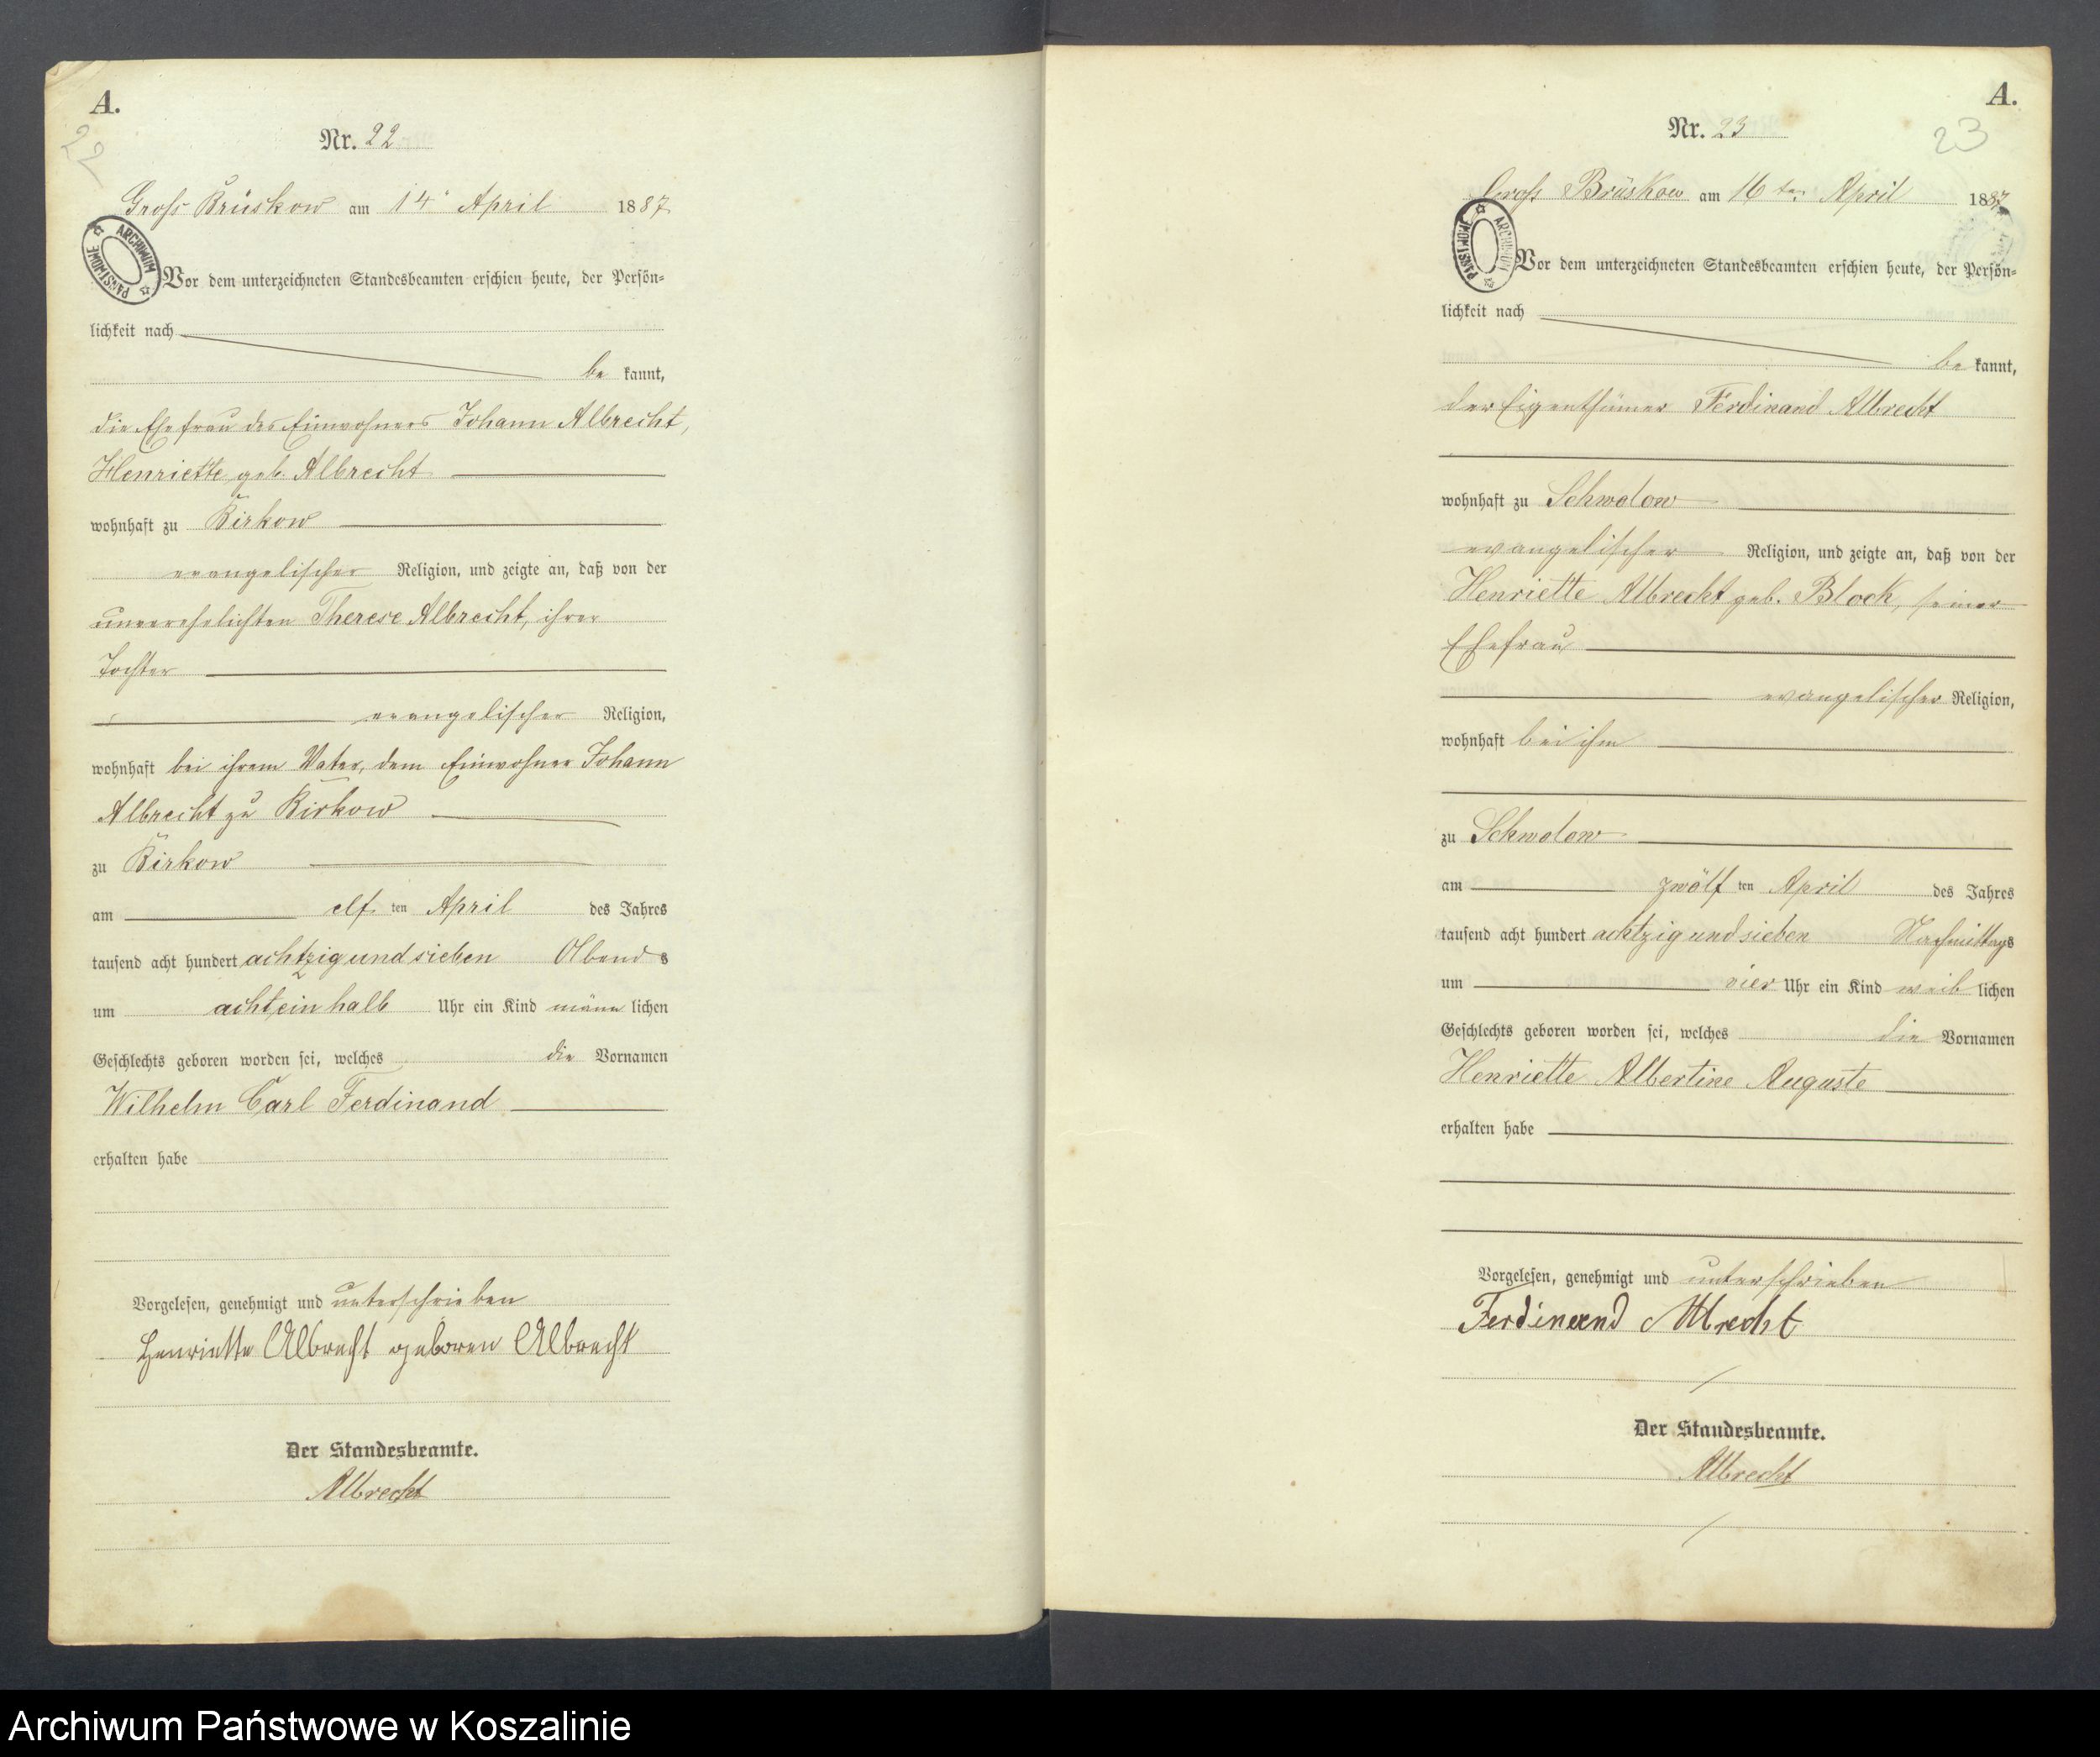 A.
22
Nr. 22
Gross Brüskow am 14. April 1887
ARCHIWUM PAŃSTWOWE
Vor dem unterzeichneten Standesbeamten erschien heute, der Persön-
lichkeit nach
be kannt,
die Ehefrau des Einwohners Johann Albrecht,
Henriette geb. Albrecht
wohnhaft zu Birkow
evangelischer Religion, und zeigte an, daß von der
unverehelichten Therese Albrecht, ihrer
Tochter
evangelischer Religion,
wohnhaft bei ihrem Vater, dem Einwohner Johann
Albrecht zu Birkow
zu Birkow
am elf ten April des Jahres
tausend acht hundert achtzig und sieben Abends
um acht ein halb Uhr ein Kind männ lichen
Geschlechts geboren worden sei, welches die Vornamen
Wilhelm Carl Ferdinand
erhalten habe
Vorgelesen, genehmigt und unterschrieben
Henriette Albrecht geboren Albrecht
Der Standesbeamte.
Albrecht
A.
23
Nr. 23
Gross Brüskow am 16ten April 1887
ARCHIWUM PAŃSTWOWE
Vor dem unterzeichneten Standesbeamten erschien heute, der Persön-
lichkeit nach
be kannt,
der Eigenthümer Ferdinand Albrecht
wohnhaft zu Schwolow
evangelischer Religion, und zeigte an, daß von der
Henriette Albrecht geb. Block, seiner
Ehefrau
evangelischer Religion,
wohnhaft bei ihm
zu Schwolow
am zwölf ten April des Jahres
tausend acht hundert achtzig und sieben Nachmittags
um vier Uhr ein Kind weib lichen
Geschlechts geboren worden sei, welches die Vornamen
Henriette Albertine Auguste
erhalten habe
Vorgelesen, genehmigt und unterschrieben
Ferdinand Albrecht
Der Standesbeamte.
Albrecht
Archiwum Państwowe w Koszalinie